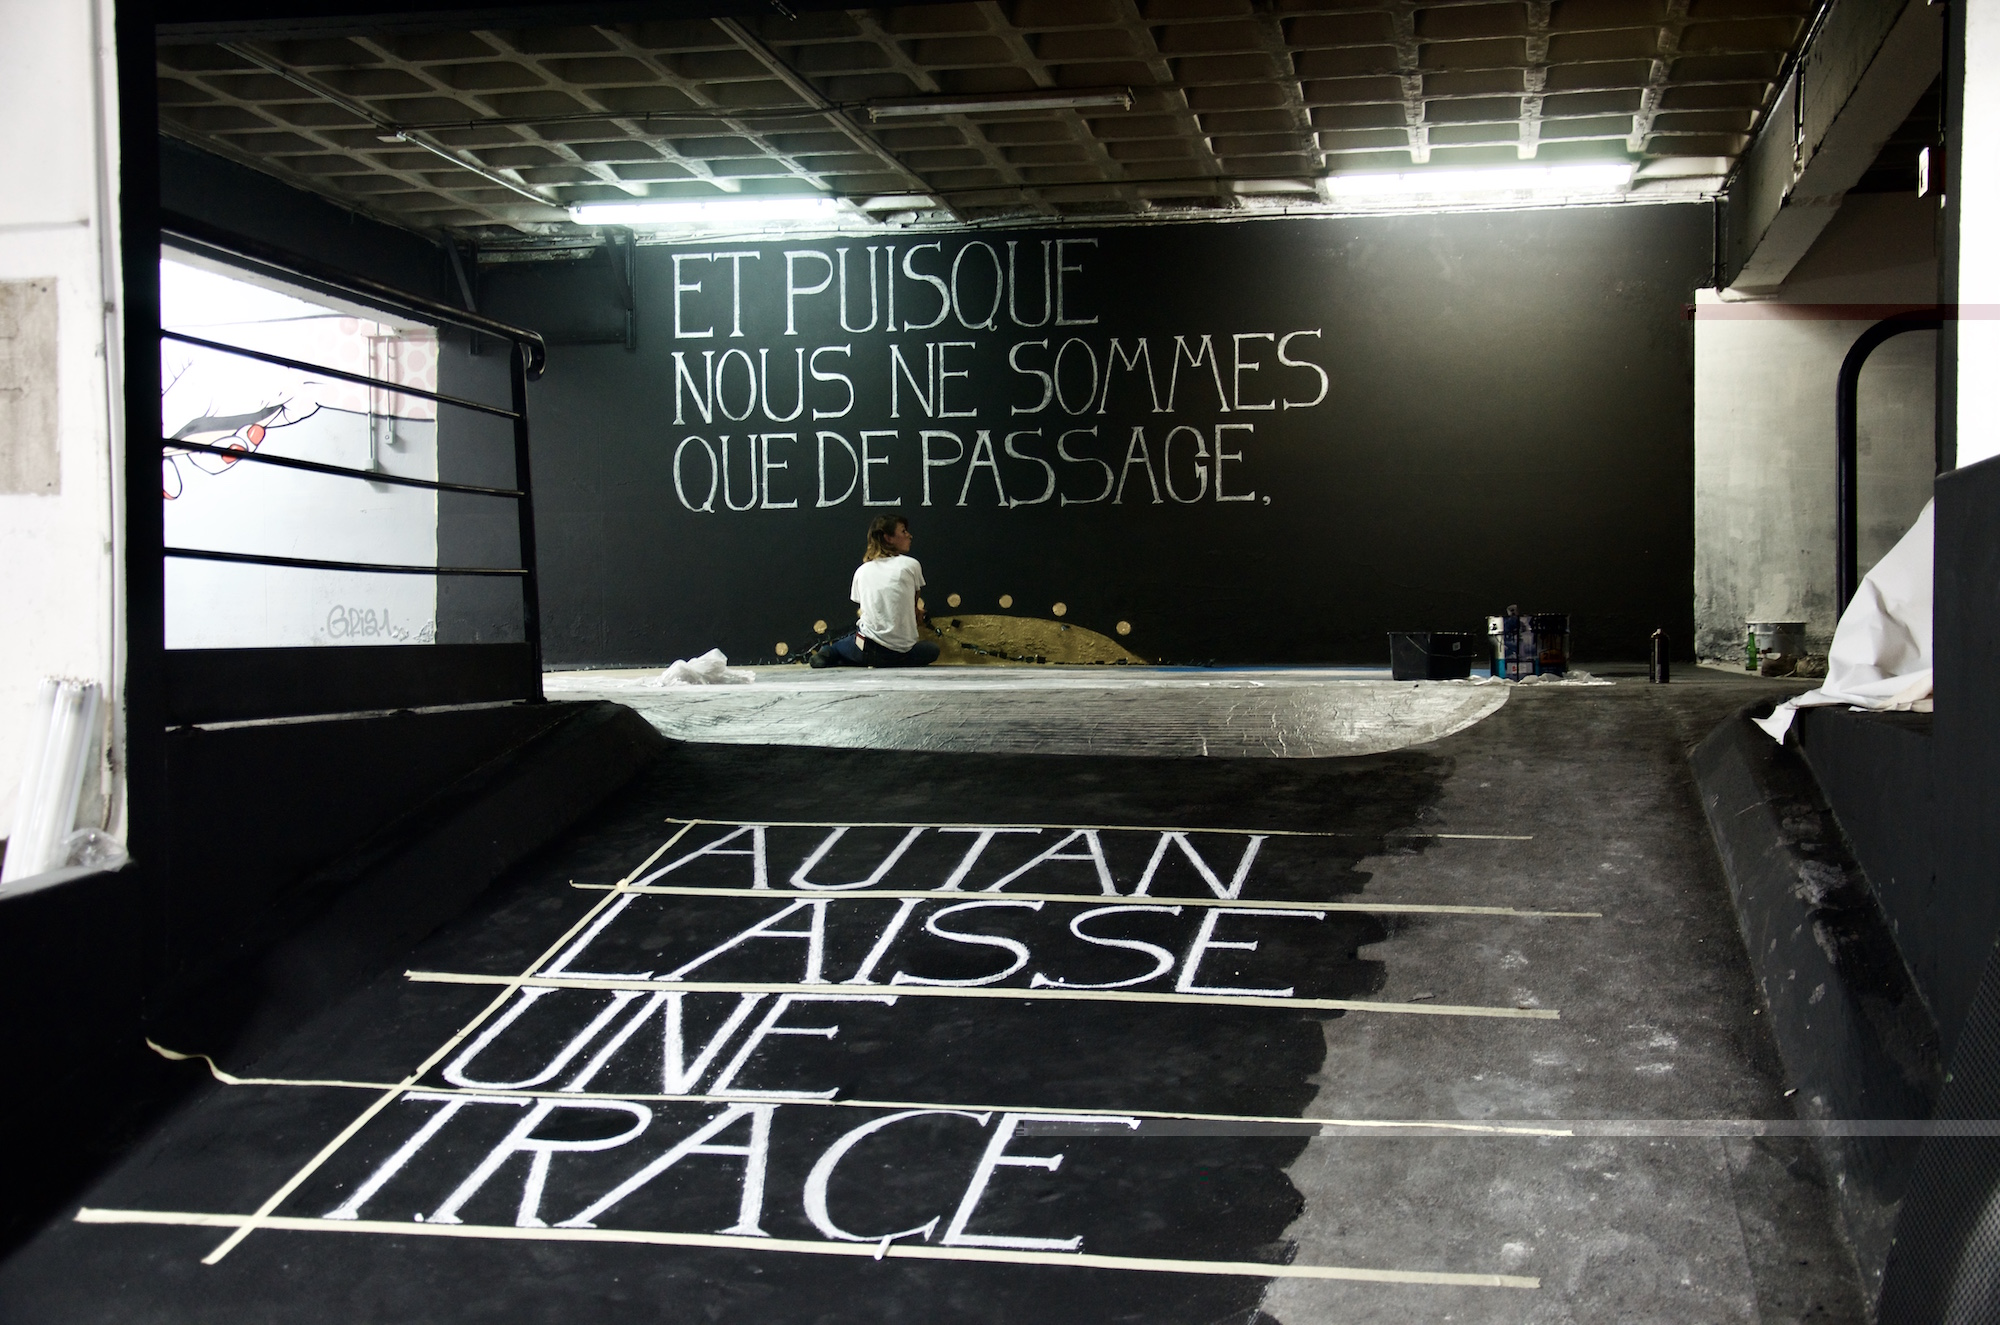 ET PUISQUE
NOUS NE SOMMES
QUE DE PASSAGE,
AUTAN
LAISSE
UNE
TRACE